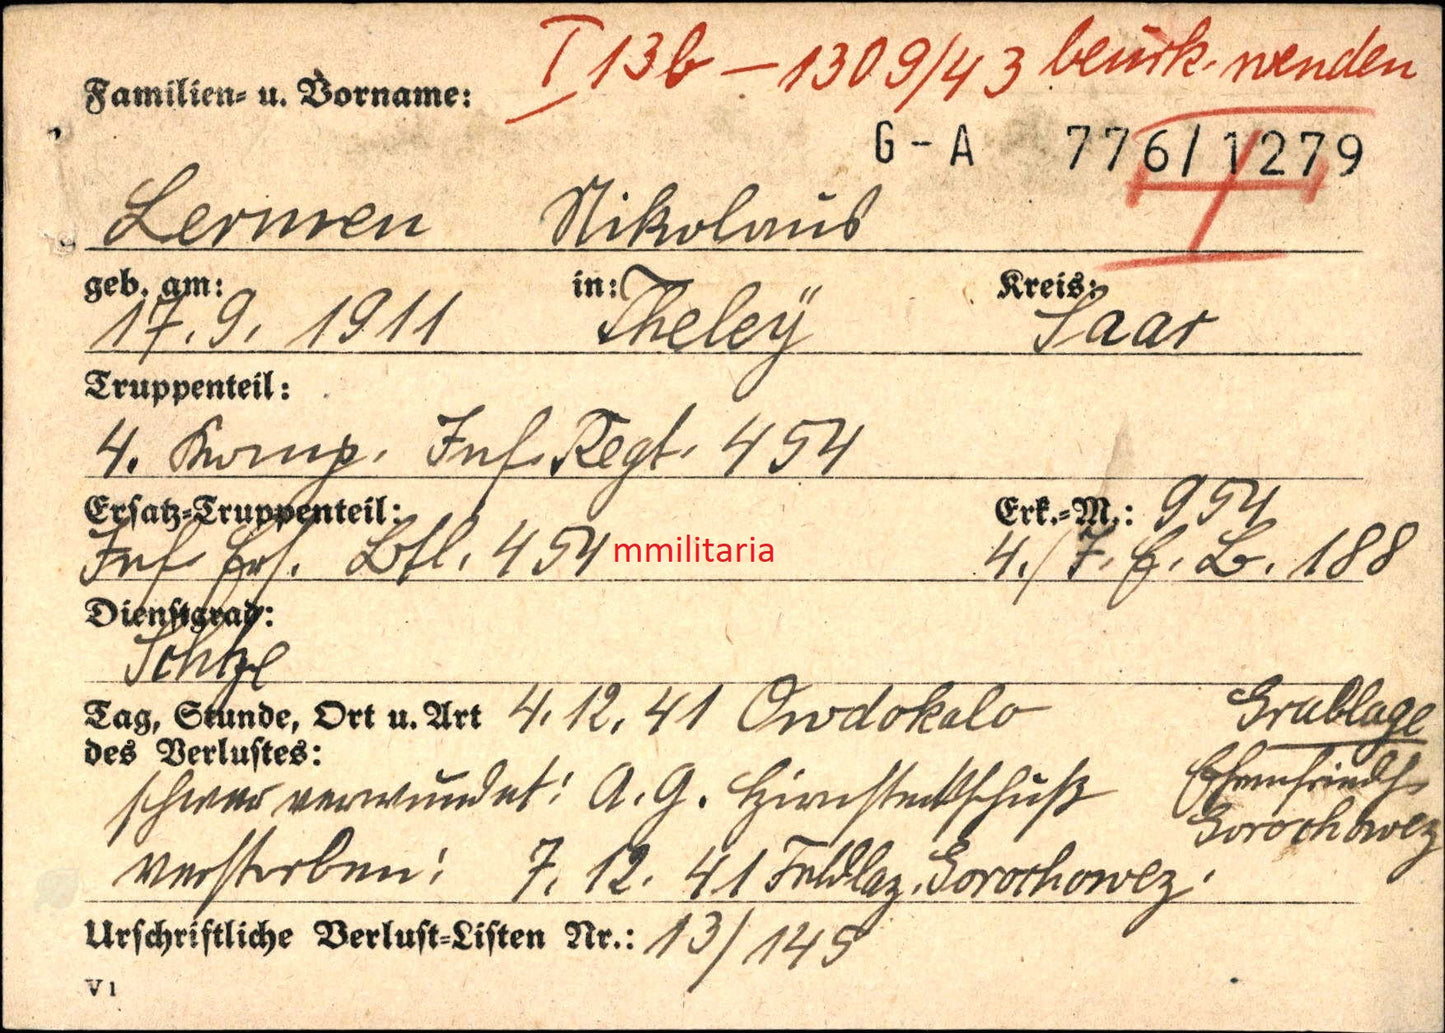 I 13b – 1309/43 beurk. wenden
Familien- u. Vorname:
G-A 776/1279
Lermen Nikolaus
geb. am: in: Kreis:
17.9.1911 Theley Saar
Truppenteil:
4. Komp. Inf. Regt. 454
Ersatz-Truppenteil: Erk.-M.: 954
Inf. Ers. Btl. 454 mmilitaria 4./I.E.B. 188
Dienstgrad:
Schtze
Tag, Stunde, Ort u. Art 4.12.41 Owdokalo Grablage
des Verlustes:
schwer verwundet: A.G. Hirnsteckschuß
Gorochowez
verstorben: 7.12.41 Feldlaz. Gorochowez.
Urschriftliche Verlust-Listen Nr.: 13/145
V 1